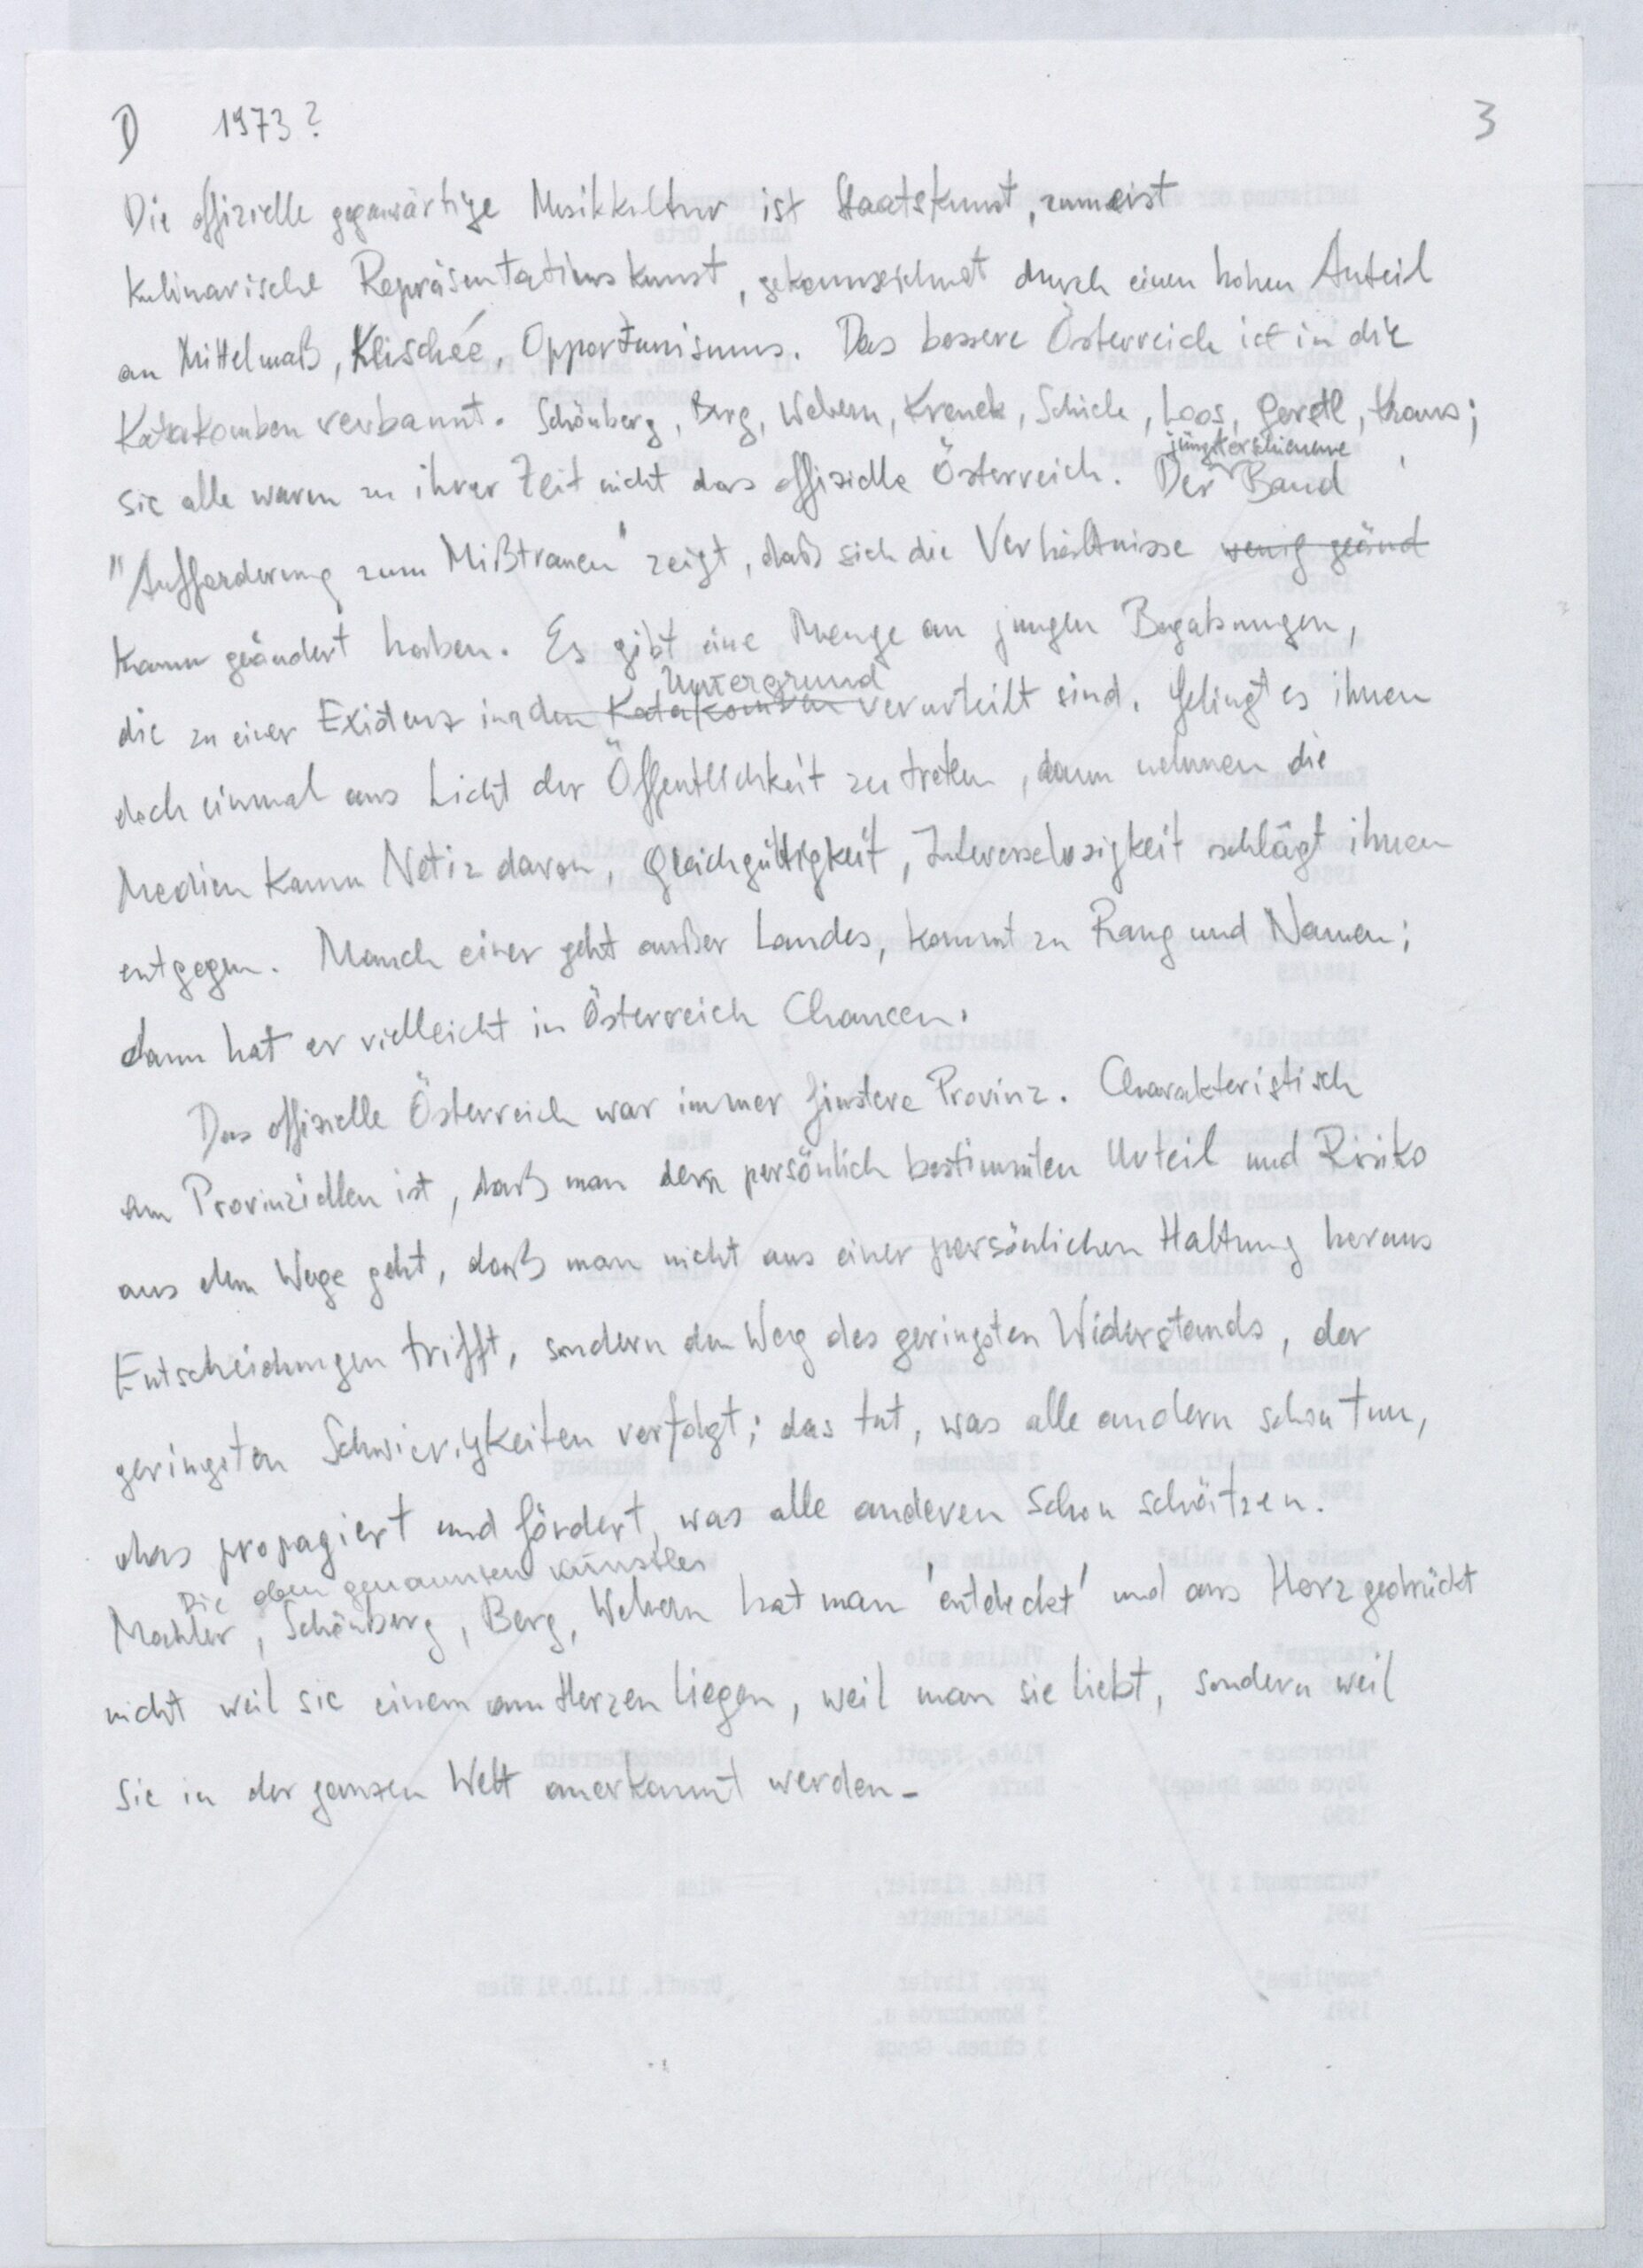 D 1973? 3
Die offizielle gegenwärtige Musikkultur ist Staatskunst, zumeist
kulinarische Repräsentationskunst, gekennzeichnet durch einen hohen Anteil
an Mittelmaß, Klischée, Opportunismus. Das bessere Österreich ist in die
Katakomben verbannt. Schönberg, Berg, Webern, Krenek, Schiele, Loos, Gerstl, Kraus;
jüngsterschienene
sie alle waren zu ihrer Zeit nicht das offizielle Österreich. Der Band
"Aufforderung zum Mißtrauen" zeigt, daß sich die Verhältnisse wenig geänd
kaum geändert haben. Es gibt eine Menge an jungen Begabungen,
Untergrund
die zu einer Existenz in den Katakomben verurteilt sind. Gelingt es ihnen
doch einmal ans Licht der Öffentlichkeit zu treten, dann nehmen die
Medien kaum Notiz davon, Gleichgültigkeit, Interesselosigkeit schlägt ihnen
entgegen. Manch einer geht außer Landes, kommt zu Rang und Namen;
dann hat er vielleicht in Österreich Chancen.
Das offizielle Österreich war immer finstere Provinz. Charakteristisch
am Provinziellen ist, daß man dem persönlich bestimmten Urteil und Risiko
aus dem Wege geht, daß man nicht aus einer persönlichen Haltung heraus
Entscheidungen trifft, sondern den Weg des geringsten Widerstands, der
geringsten Schwierigkeiten verfolgt; das tut, was alle andern schon tun,
das propagiert und fördert, was alle anderen schon schätzen.
Die oben genannten Künstler
Mahler, Schönberg, Berg, Webern hat man 'entdeckt' und ans Herz gedrückt
nicht weil sie einem am Herzen liegen, weil man sie liebt, sondern weil
sie in der ganzen Welt anerkannt werden.